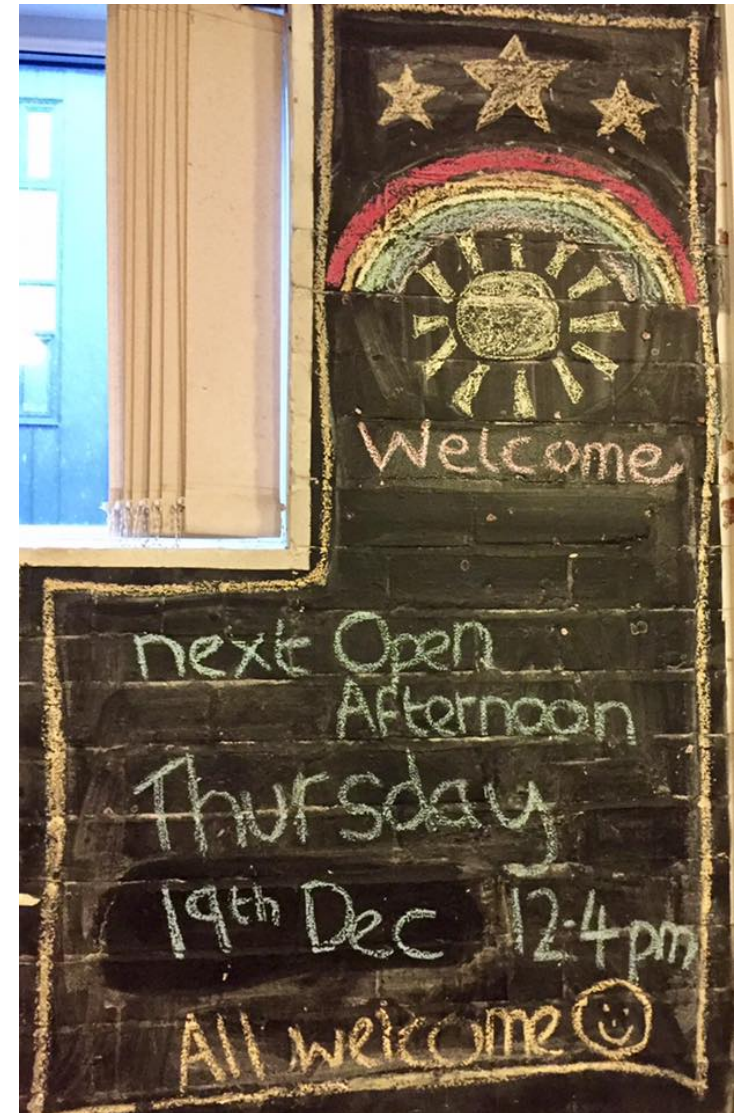 Welcome
next Open
Afternoon
Thursday
19th Dec 12-4pm
All welcome